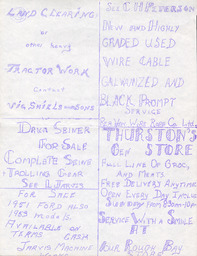 LAND CLEARING
OR
OTHER HEAVY
TRACTOR WORK
CONTACT
VIC SHIELDS AND SONS
DRUM SEINER
FOR SALE
COMPLETE SEINE
+ TROLLING GEAR
SEE H. JARVIS
FOR SALE
1951 FORD ALSO
1953 MODELS.
AVAILABLE ON
TERMS CASH
JARVIS MACHINE
SEE
NEW AND HIGHLY
GRADED USED
WIRE CABLE
GALVANIZED AND
BLACK. PROMPT
SERVICE
THURSTON'S
GEN STORE
FULL LINE OF GROC,
AND MEATS.
FREE DELIVERY ANYTIME
OPEN EVERY DAY INCLUD
SERVICE WITH A SMILE
AT
OUR ROUGH BAY
STORE